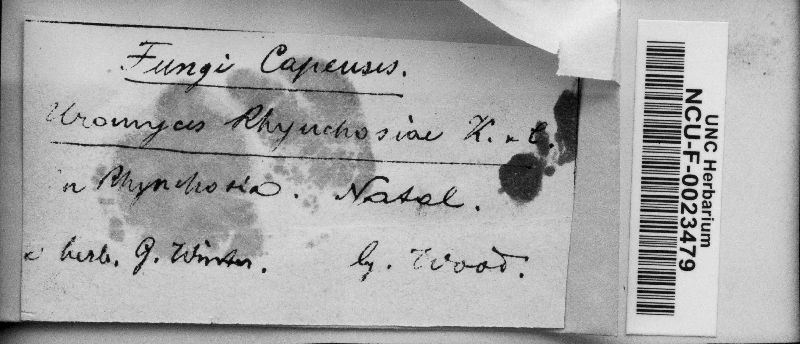 Fungi Capensis.
Uromyces Rhynchosiae K. & C.
in Rhynchosia. Natal.
herb. G. Winter. lg. Wood.
UNC Herbarium
NCU-F-0023479